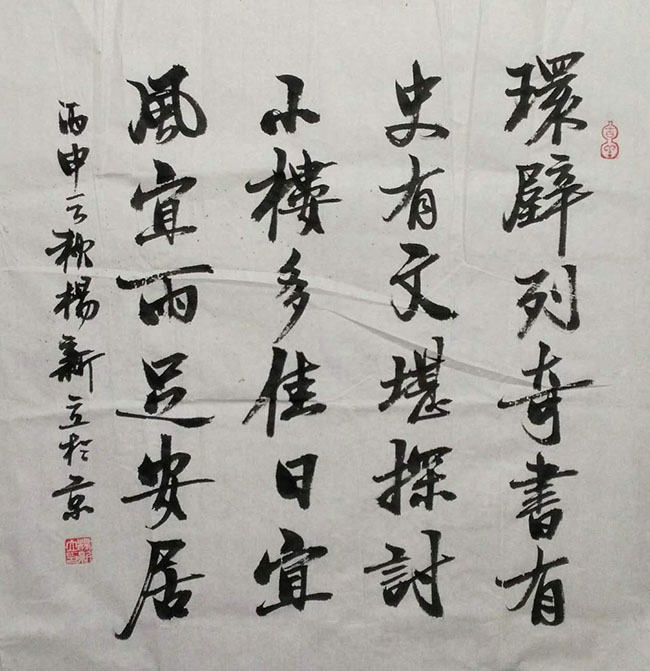 環壁列奇書有
史有文堪探討
小樓多佳日宜
風宜雨足安居
丙申之秋楊新立於京